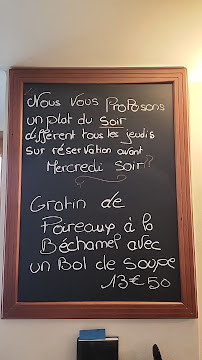 Nous Vous Proposons
un plat du Soir
différent tous les jeudis
sur réservation avant
Mercredi Soir
Gratin de
Poireaux à la
Béchamel avec
un Bol de soupe
13€50